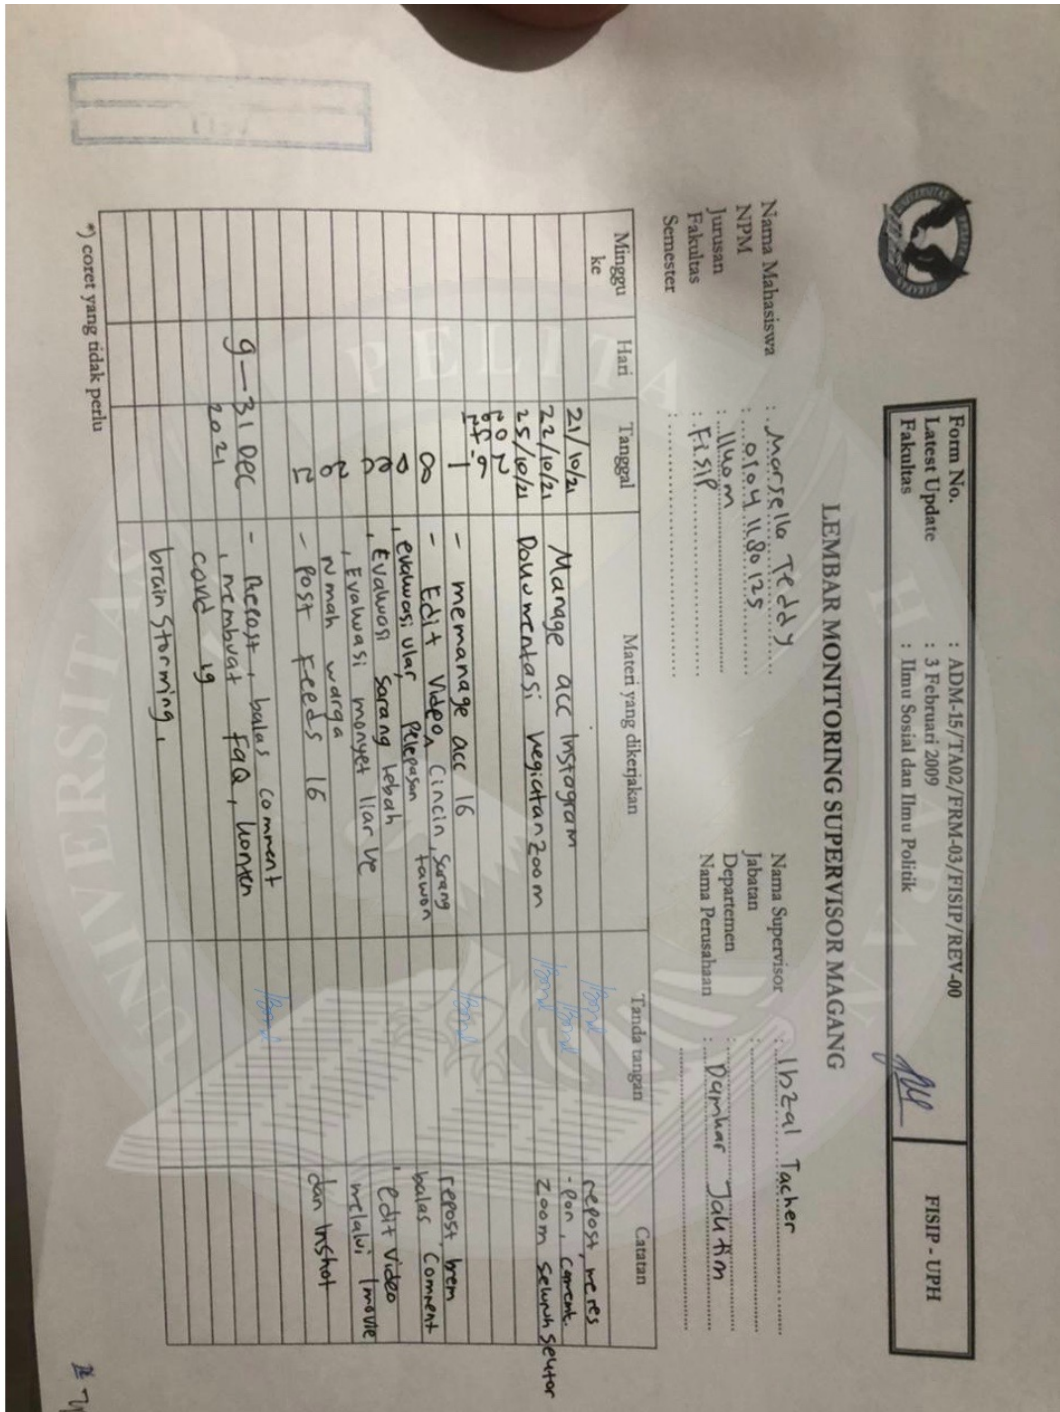 Form No. : ADM-15/TA02/FRM-03/FISIP/REV-00
Latest Update : 3 Februari 2009
Fakultas : Ilmu Sosial dan Ilmu Politik
FISIP - UPH
LEMBAR MONITORING SUPERVISOR MAGANG
Nama Mahasiswa : Marsella Teddy
NPM : 01041180125
Jurusan : Ilkom
Fakultas : FISIP
Semester :
Nama Supervisor : Ibzal Tacher
Jabatan :
Departemen : Damkar Jaktim
Nama Perusahaan :
Minggu ke Hari Tanggal Materi yang dikerjakan Tanda tangan Catatan
21/10/21 Manage acc Instagram repost, meres
22/10/21 - pon, coment.
25/10/21 Dokumentasi kegiatan zoom zoom seluruh sektor
- memanage acc IG repost, brem
- Edit Video, Cincin, sarang tawon balas Comment
, evaluasi ular, Pelepasan
, Evaluasi sarang lebah , edit video
, Evaluasi monyet liar ke melalui Imovie
rmah warga dan Inshot
- Post Feeds IG
9 - 31 Dec 2021 - Repost, balas comment
, membuat FaQ, konten
covid 19
brain storming,
*) coret yang tidak perlu
UNIVERSITAS PELITA HARAPAN